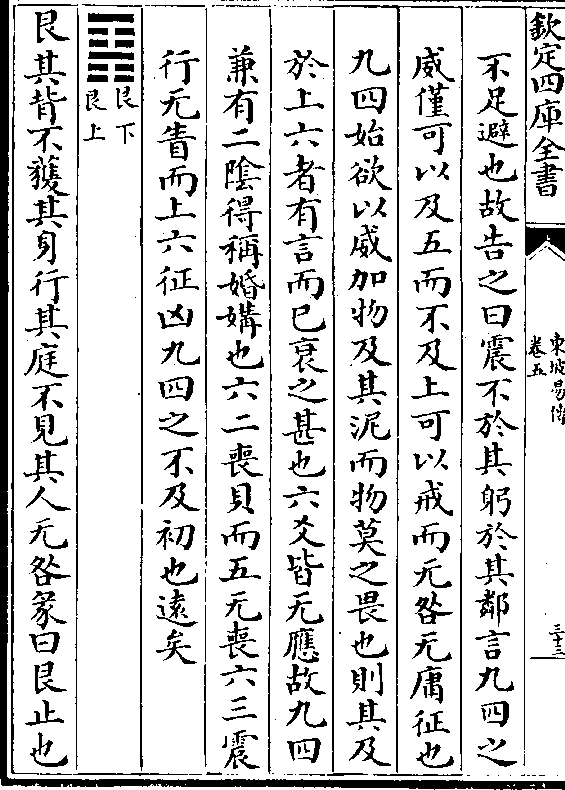 欽定四庫全書
東坡易傳
卷五
三十三
不足避也故告之曰震不於其躬於其鄰言九四之
威僅可以及五而不及上可以戒而无咎无庸征也
九四始欲以威加物及其泥而物莫之畏也則其及
於上六者有言而已衰之甚也六爻皆无應故九四
兼有二陰得稱婚媾也六二喪貝而五无喪六三震
行无眚而上六征凶九四之不及初也遠矣
艮下
艮上
艮其背不獲其身行其庭不見其人无咎彖曰艮止也